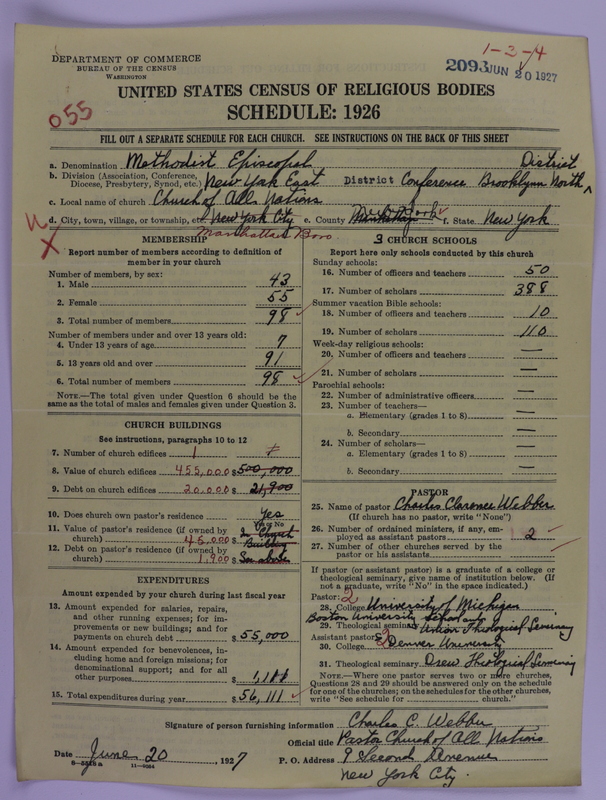 1-3-4
DEPARTMENT OF COMMERCE
BUREAU OF THE CENSUS
WASHINGTON
2093 JUN 20 1927
UNITED STATES CENSUS OF RELIGIOUS BODIES
SCHEDULE: 1926
055
FILL OUT A SEPARATE SCHEDULE FOR EACH CHURCH. SEE INSTRUCTIONS ON THE BACK OF THIS SHEET
a. Denomination Methodist Episcopal District
b. Division (Association, Conference, Diocese, Presbytery, Synod, etc.) New York East District Conference Brooklyn North
c. Local name of church Church of All Nations
d. City, town, village, or township, etc. New York City e. County New York f. State New York
Manhattan Boro
MEMBERSHIP
Report number of members according to definition of
member in your church
Number of members, by sex:
1. Male 43
2. Female 55
3. Total number of members 98
Number of members under and over 13 years old:
4. Under 13 years of age 7
5. 13 years old and over 91
6. Total number of members 98
NOTE.—The total given under Question 6 should be the
same as the total of males and females given under Question 3.
CHURCH BUILDINGS
See instructions, paragraphs 10 to 12
7. Number of church edifices 1
8. Value of church edifices 455,000 $ 500,000
9. Debt on church edifices 20,000 $ 21,900
10. Does church own pastor's residence Yes
Yes or No
11. Value of pastor's residence (if owned by
church) 45,000 $ In Church Building
12. Debt on pastor's residence (if owned by
church) 1,900 $ See above
EXPENDITURES
Amount expended by your church during last fiscal year
13. Amount expended for salaries, repairs,
and other running expenses; for im-
provements or new buildings; and for
payments on church debt $ 55,000
14. Amount expended for benevolences, in-
cluding home and foreign missions; for
denominational support; and for all
other purposes $ 1,111
15. Total expenditures during year $ 56,111
3 CHURCH SCHOOLS
Report here only schools conducted by this church
Sunday schools:
16. Number of officers and teachers 50
17. Number of scholars 388
Summer vacation Bible schools:
18. Number of officers and teachers 10
19. Number of scholars 110
Week-day religious schools:
20. Number of officers and teachers —
21. Number of scholars —
Parochial schools:
22. Number of administrative officers —
23. Number of teachers—
a. Elementary (grades 1 to 8) —
b. Secondary —
24. Number of scholars—
a. Elementary (grades 1 to 8) —
b. Secondary —
PASTOR
25. Name of pastor Charles Clarence Webber
(If church has no pastor, write "None")
26. Number of ordained ministers, if any, em-
ployed as assistant pastors 2
27. Number of other churches served by the
pastor or his assistants —
If pastor (or assistant pastor) is a graduate of a college or
theological seminary, give name of institution below. (If
not a graduate, write "No" in the space indicated.)
Pastor: 2
28. College University of Michigan
Boston University School of
29. Theological seminary & Union Theological Seminary
Assistant pastor: 2
30. College Denver University
31. Theological seminary Drew Theological Seminary
NOTE.—Where one pastor serves two or more churches,
Questions 28 and 29 should be answered only on the schedule
for one of the churches; on the schedules for the other churches,
write "See schedule for church."
Signature of person furnishing information Charles C. Webber
Official title Pastor Church of All Nations
Date June 20, 1927 P. O. Address 9 Second Avenue
New York City.
11—9264